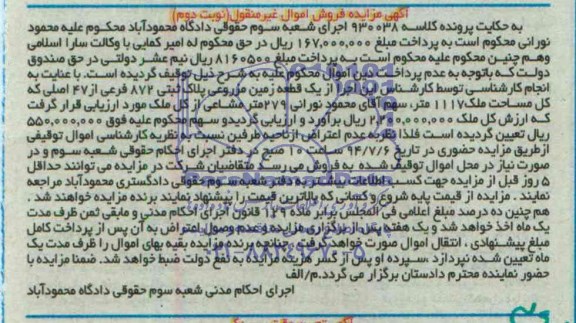 آگهی مزایده فروش اموال غیرمنقول(نوبت دوم)
به حکایت پرونده کلاسه ۹۳۰۰۳۸ اجرای شعبه سوم حقوقی دادگاه محمودآباد محکوم علیه محمود
نورانی محکوم است به پرداخت مبلغ ۱۶۷,۰۰۰,۰۰۰ ریال در حق محکوم له امیر کمابی با وکالت سارا اسلامی
وهم چنین محکوم علیه محکوم است به پرداخت مبلغ ۸۱۶۰۵۰۰ ریال نیم عشر دولتی در حق صندوق
دولت که باتوجه به عدم پرداخت دین اموال محکوم علیه به شرح ذیل توقیف گردیده است. با عنایت به
انجام کارشناسی توسط کارشناس اجرا از یک قطعه زمین مزروعی پلاک ثبتی ۸۷۲ فرعی از۴۷ اصلی که
کل مساحت ملک۱۱۱۷ متر، سهم آقای محمود نورانی ۲۷۹متر مشاعی از کل ملک مورد ارزیابی قرار گرفت
که ارزش کل ملک ۲,۲۰۰,۰۰۰,۰۰۰ ریال برآورد و ارزیابی گردیدو سهم محکوم علیه فوق ۵۵۰,۰۰۰,۰۰۰
ریال تعیین گردیده است فلذا نظربه عدم اعتراض ازناحیه طرفین نسبت به نظریه کارشناسی اموال توقیفی
ازطریق مزایده حضوری در تاریخ ۹۴/۷/۶ ساعت ۱۰ صبح در دفتر اجرای احکام حقوقی شعبه سوم و در
صورت نیاز در محل اموال توقیف شده به فروش می رسد متقاضیان شرکت در مزایده می توانند حداقل
۵ روز قبل از مزایده جهت کسب اطلاعات بیشتر به دفتر شعبه سوم حقوقی دادگستری محمودآباد مراجعه
نمایند . مزایده از قیمت پایه شروع و کسانی که بالاترین قیمت را پیشنهاد نمایند برنده مزایده خواهند شد .
هم چنین ده درصد مبلغ اعلامی فی المجلس برابر ماده ۱۲۹ قانون اجرای احکام مدنی و مابقی ثمن ظرف مدت
یک ماه اخذ خواهد شد و یک هفته پس از برگزاری مزایده و عدم وصول اعتراض به آن پس از پرداخت کامل
مبلغ پیشنهادی ، انتقال اموال صورت خواهد گرفت . چنانچه برنده مزایده بقیه بهای اموال را ظرف مدت یک
ماه تعیین شده نپردازد ،سپرده او پس از کسر هزینه مزایده به نفع دولت ضبط خواهد شد. ضمنا مزایده با
حضور نماینده محترم دادستان برگزار می گردد.م/الف
اجرای احکام مدنی شعبه سوم حقوقی دادگاه محمودآباد